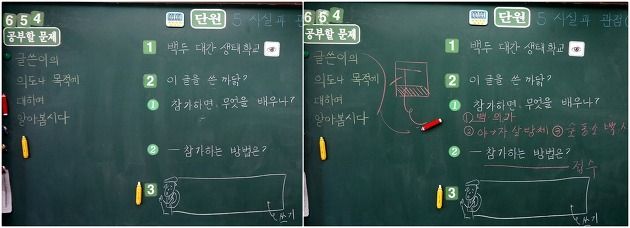 6 5 4
단원 5 사실과
공부할 문제
글쓴이의
의도나 목적에
대하여
알아봅시다
1 백두 대간 생태학교
2 이 글을 쓴 까닭?
1 참가하면, 무엇을 배우나?
2 ㅡ 참가하는 방법은?
3
쓰기
6 5 4
단원 5 사실과 관점
공부할 문제
글쓴이의
의도나 목적에
대하여
알아봅시다
1 백두 대간 생태학교
2 이 글을 쓴 까닭?
1 참가하면, 무엇을 배우나?
①
②
③
2 ㅡ 참가하는 방법은?
접수
3
쓰기